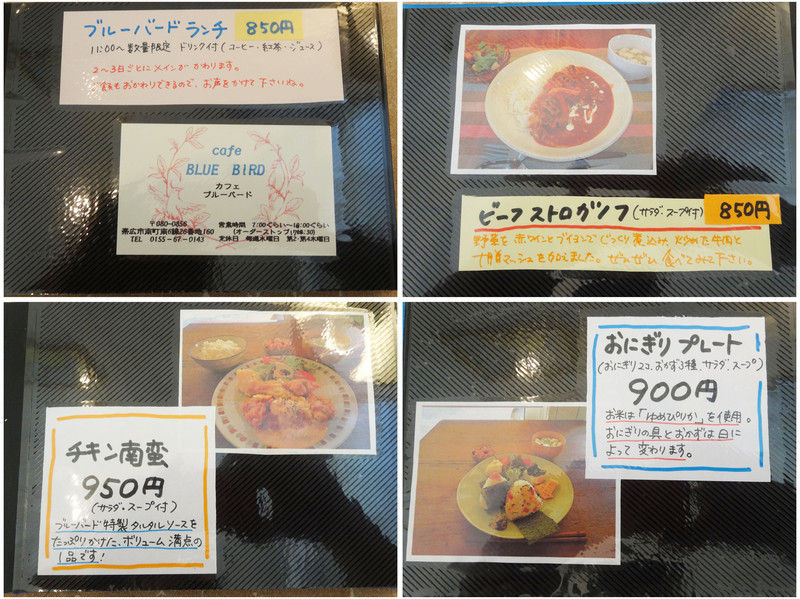 ブルーバードランチ 850円
11:00~ 数量限定 ドリンク付(コーヒー・紅茶・ジュース)
2~3日ごとにメインがかわります。
ご飯もおかわりできるので、お声をかけて下さいね。
cafe
BLUE BIRD
カフェ
ブルーバード
〒080-0856
帯広市南町南6線26番地160
TEL 0155-67-0143
営業時間 7:00ぐらい~18:00ぐらい
(オーダーストップ17時30)
定休日 毎週水曜日 第2・第4木曜日
ビーフストロガノフ (サラダ・スープ付) 850円
野菜を赤ワインとブイヨンでじっくり煮込み 炒めた牛肉と
十勝マッシュを加えました。ぜひぜひ食べてみて下さい。
チキン南蛮
950円
(サラダ・スープ付)
ブルーバード特製タルタルソースを
たっぷりかけた、ボリューム満点の
1品です!
おにぎりプレート
(おにぎり2コ、おかず3種、サラダ、スープ)
900円
お米は「ゆめぴりか」を使用。
おにぎりの具とおかずは日に
よって変わります。